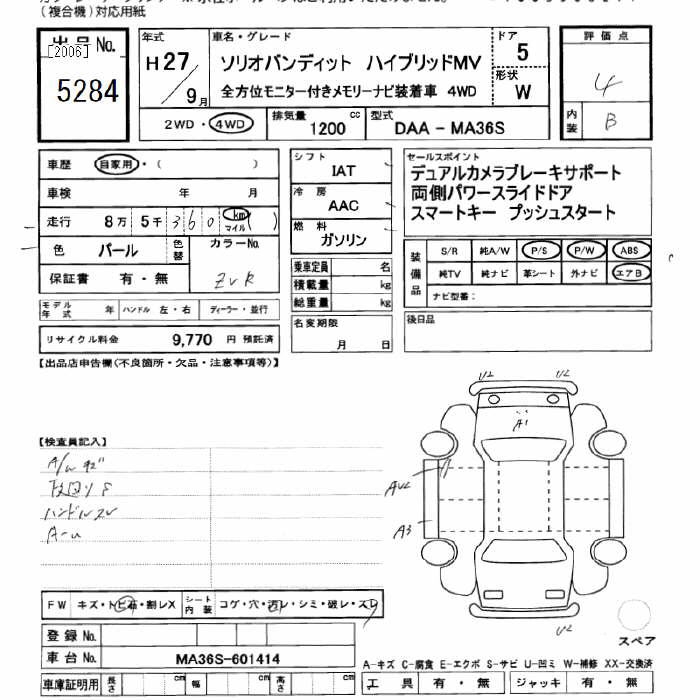 (複合機)対応用紙
出品No.
[2006]
5284
年式
H27
9月
車名・グレード
ソリオバンディット ハイブリッドMV
全方位モニター付きメモリーナビ装着車 4WD
ドア
5
形状
W
評価点
4
内装
B
2WD・4WD
排気量
1200
cc
型式
DAA-MA36S
車歴
自家用・( )
車検 年 月
走行 8万 5千 360 km マイル ( )
色 パール
色替
カラーNo.
ZVR
保証書 有・無
シフト
IAT
冷房
AAC
燃料
ガソリン
セールスポイント
デュアルカメラブレーキサポート
両側パワースライドドア
スマートキー プッシュスタート
装備品
S/R 純A/W P/S P/W ABS
純TV 純ナビ 革シート 外ナビ エアB
ナビ型番:
乗車定員 名
積載量 kg
総重量 kg
モデル年式 年 ハンドル 左・右 ディーラー・並行
名変期限
月 日
後日品
リサイクル料金 9,770円 預託済
【出品店申告欄(不良箇所・欠品・注意事項等)】
【検査員記入】
ハンドルスレ
U2 U2
A1
AU2
A3
U2
スペア
FW キズ・トビ石・割レX
シート内装
コゲ・穴・汚レ・シミ・破レ・スレ
登録No.
車台No. MA36S-601414
車庫証明用 長さ cm 幅 cm 高さ cm
A-キズ C-腐食 E-エクボ S-サビ U-凹ミ W-補修 XX-交換済
工具 有・無 ジャッキ 有・無